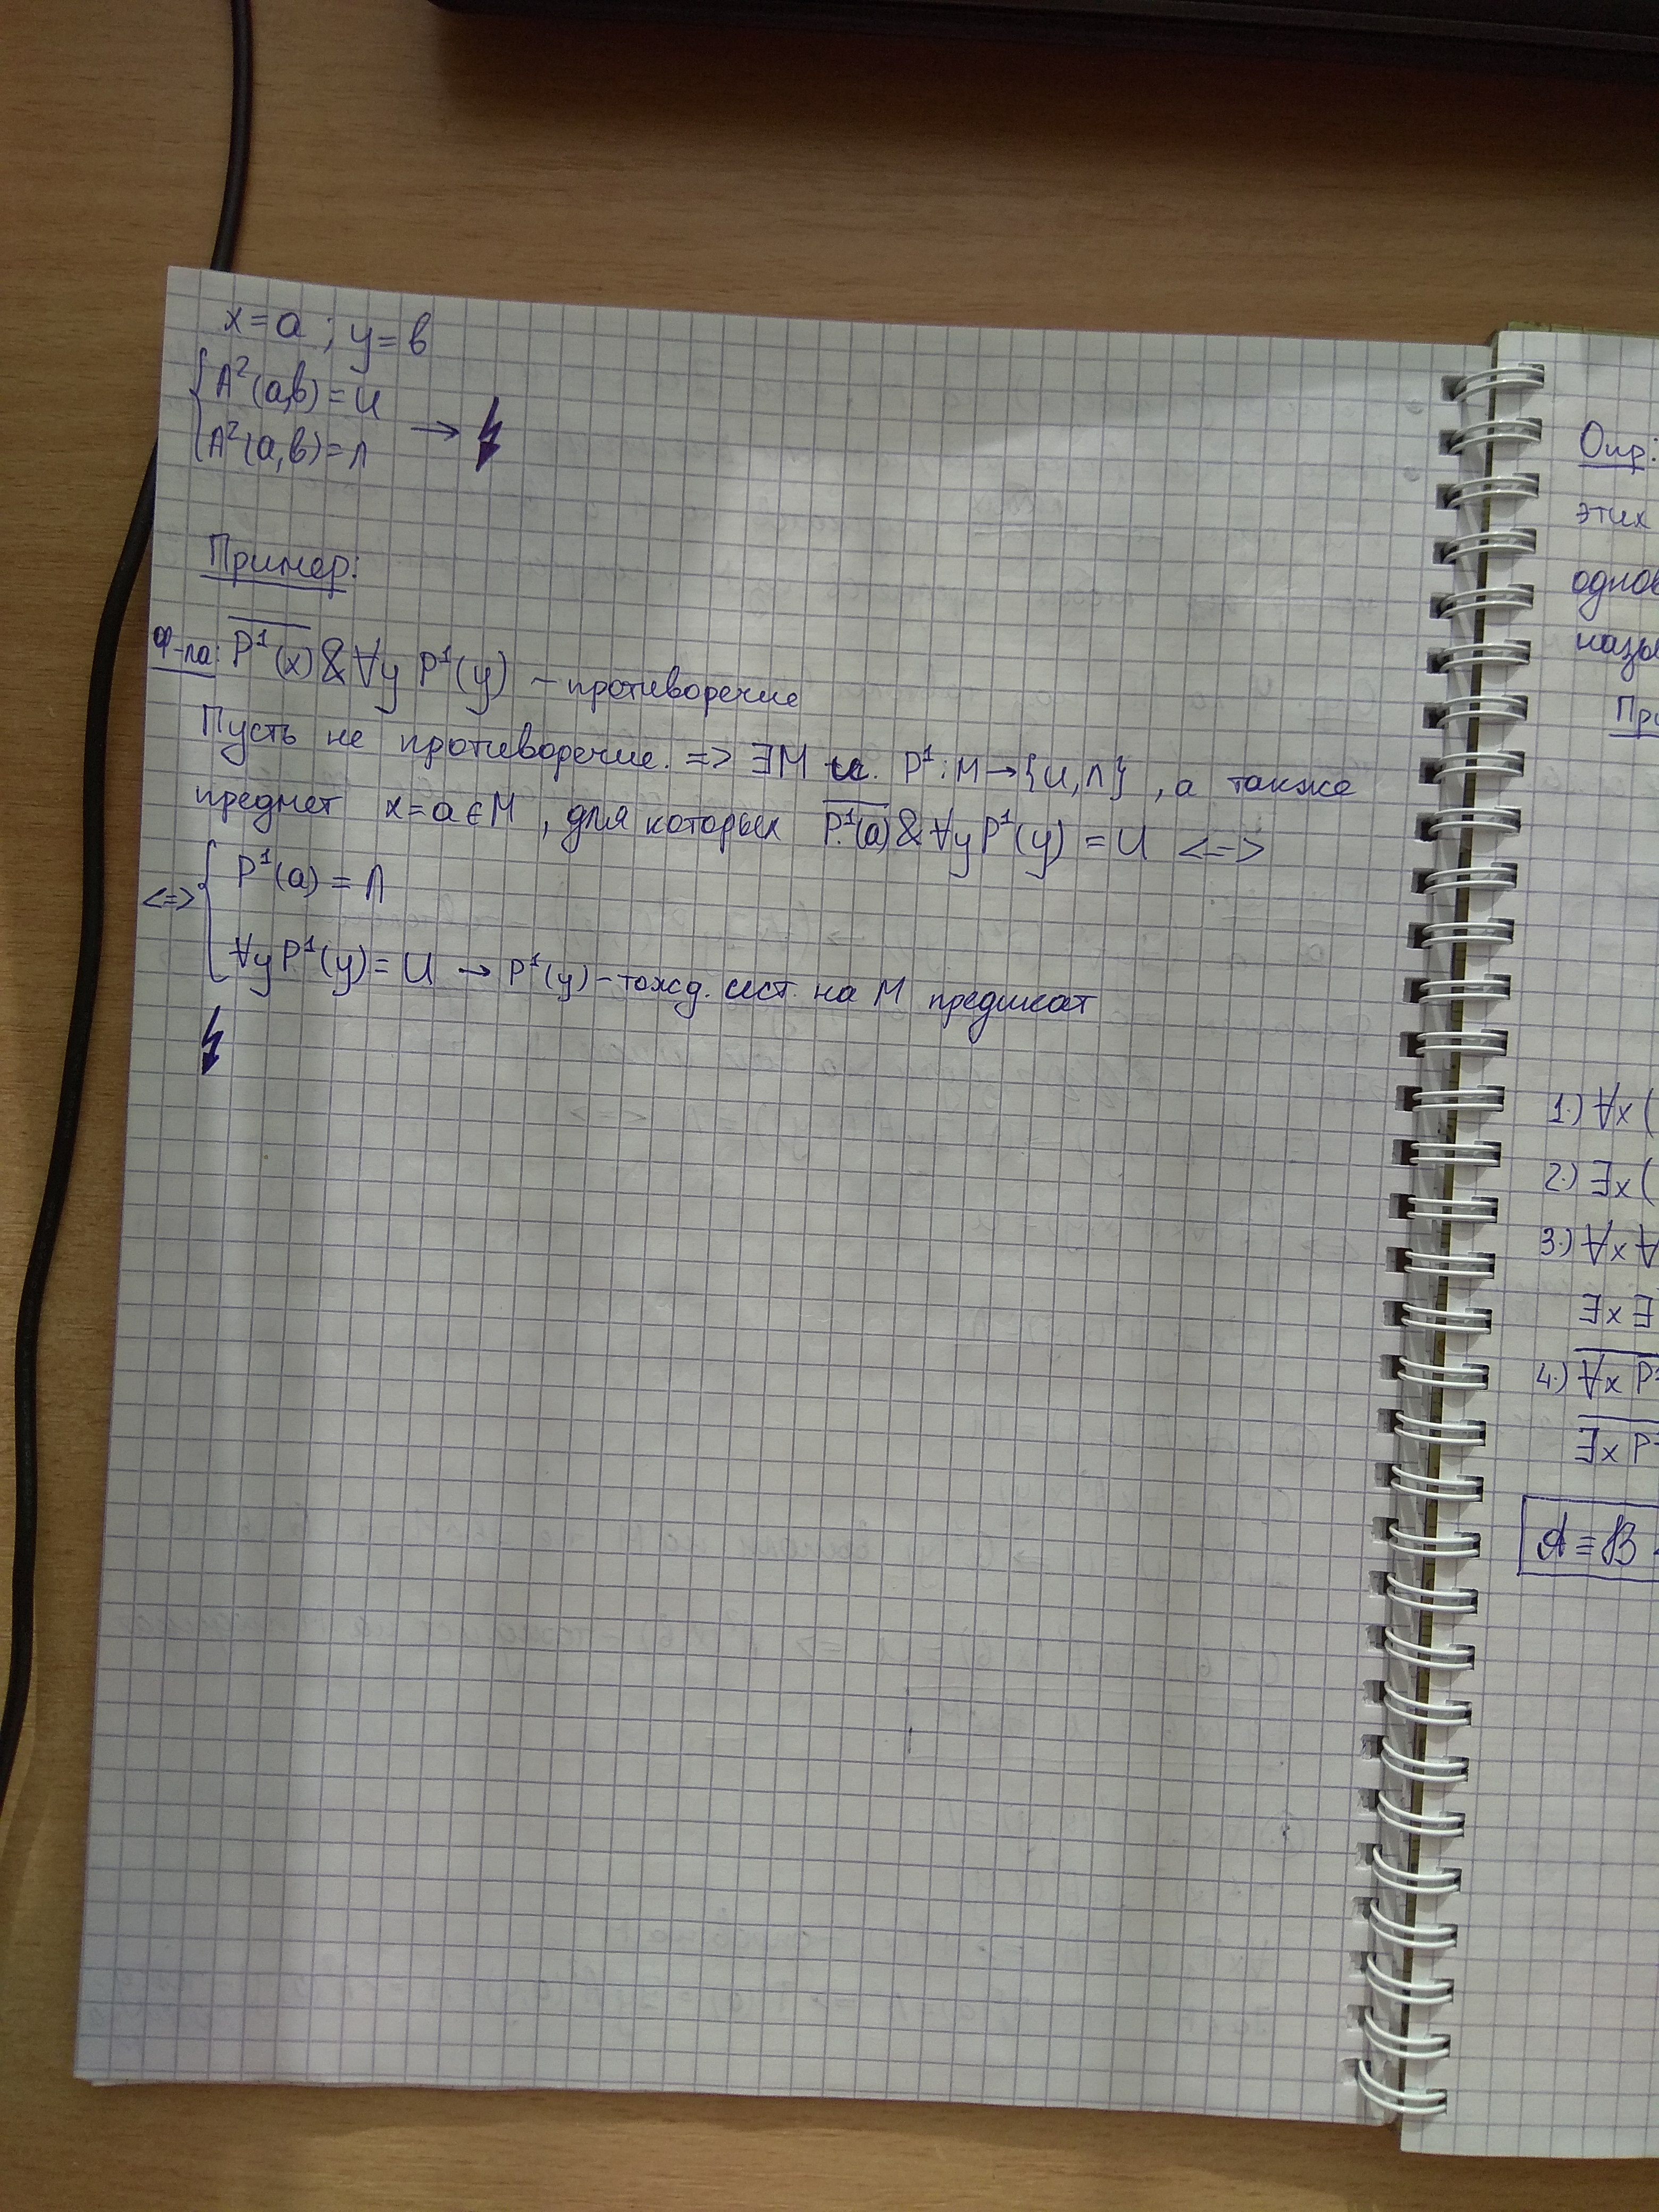 x=a; y=в
{ A²(a,в)=И
{ A²(a,в)=Л → ↯
Пример:
ф-ла: \overline{P¹(x)} & ∀y P¹(y) – противоречие
Пусть не противоречие. => ∃M и. P¹: M→{И,Л}, а также
предмет x=a∈M, для которых \overline{P¹(a)} & ∀y P¹(y) = И <=>
<=> { P¹(a) = Л
{ ∀y P¹(y) = И → P¹(y) – тожд. ист. на M предикат
↯
Опр:
этих
1.) ∀x (
2.) ∃x (
3.) ∀x ∀
∃x ∃
4.) ∀x P¹
∃x P¹
A ≡ B